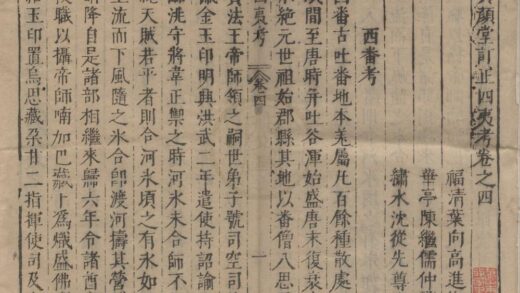 顏堂訂正四夷考卷之四
福清葉向高進
華亭陳繼儒仲
繡水沈從先尊
西番考
西番古吐番地本羌屬凡百餘種散處
間至唐時并吐谷渾始盛唐末復衰
絕元世祖始郡縣其地以番僧八思
四夷考 卷四 一
寶法王帝師領之嗣世弟子號司空司
佩金玉印明興洪武二年遣使持詔諭
臨洮守將韋正禦之時河氷未合師不
天賊若平者則合河氷頃之有氷如
流而下風隨之氷合即渡河擣其營
降自是諸部相繼來歸六年令諸酋
授職以攝帝師喃加巴藏卜為熾盛佛
玉印置烏思藏朶甘二指揮使司及